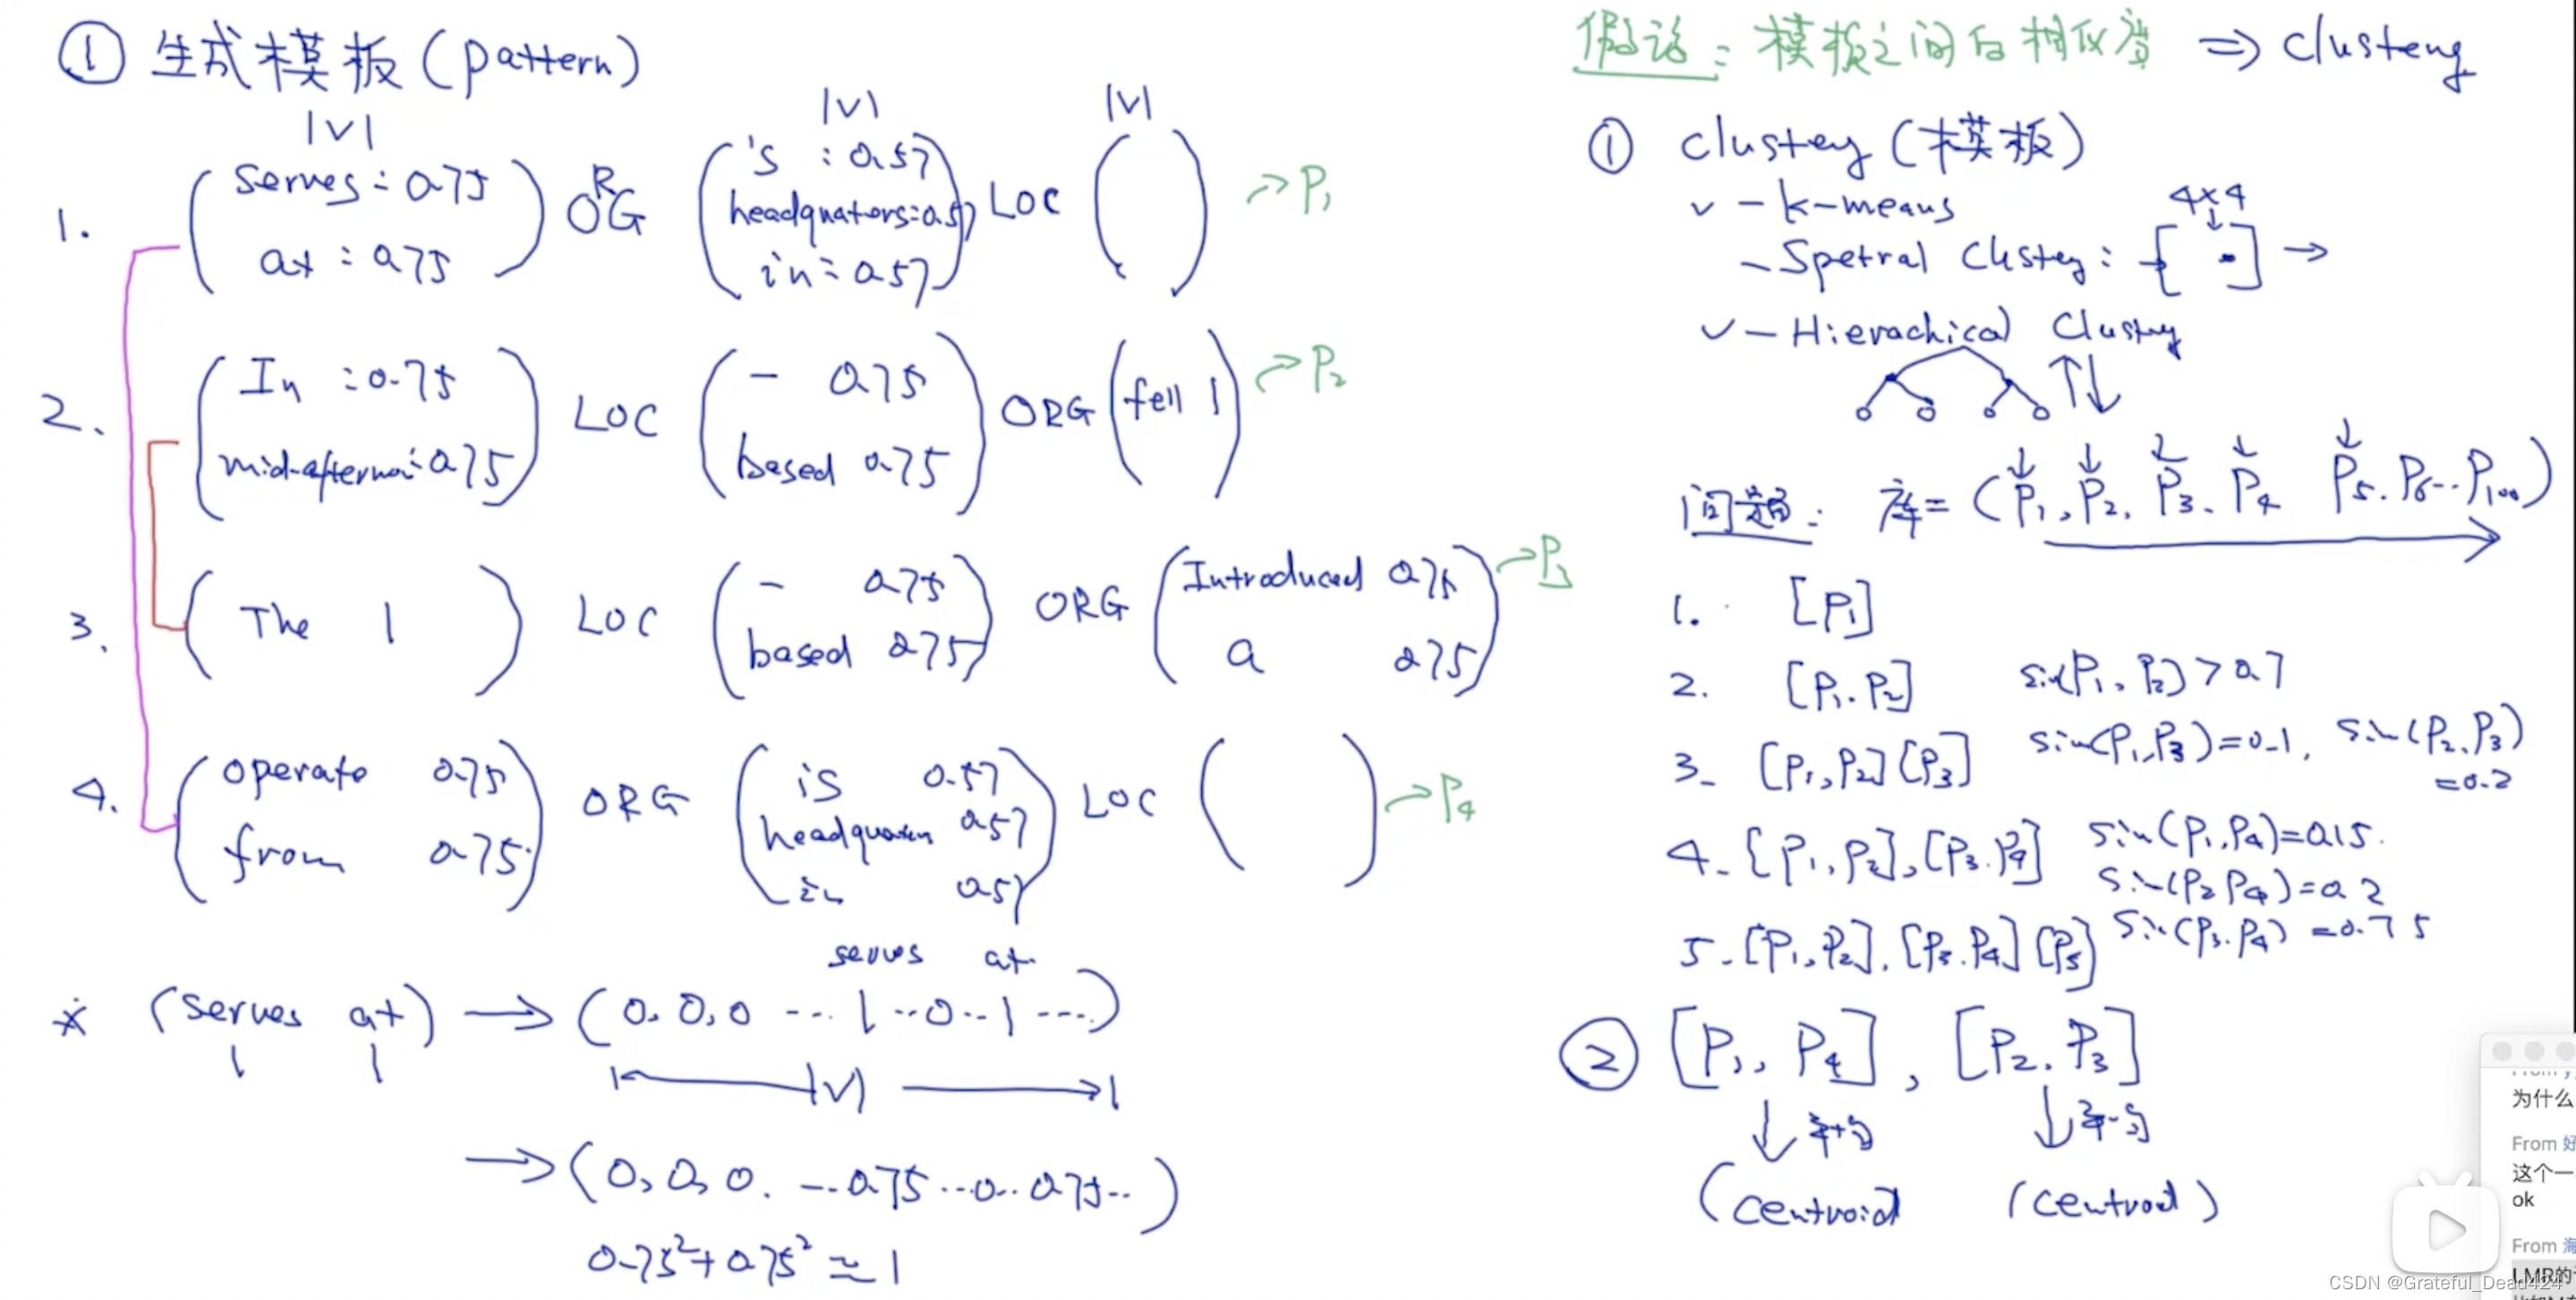 ① 生成模板(pattern)
|V| |V| |V|
1. (serves: 0.75 at: 0.75) ORG ('s : 0.57 headquaters: 0.57 in: 0.57) LOC ( ) → P1
2. (In : 0.75 mid-afternoi: 0.75) LOC (- 0.75 based 0.75) ORG (fell 1) → P2
3. (The 1) LOC (- 0.75 based 0.75) ORG (Introduced 0.75 a 0.75) → P3
4. (operate 0.75 from 0.75) ORG (is 0.57 headquaters 0.57 in 0.57) LOC ( ) → P4
serves at
* (serves at) → (0, 0, 0 ... 1 .. 0 .. 1 ....)
|V|
→ (0, 0, 0. ... 0.75 ... 0.. 0.75 ..)
0.75² + 0.75² ≈ 1
假设: 模板之间的相似度 ⇒ clusteng
① clusteg (模板)
✓ - k-means
4×4
- Spetral Clusteg: [ ] →
✓ - Hierachical Clusteg
问题: 库 = (P1, P2, P3. P4 P5. P6 ... P100)
1. [P1]
2. [P1. P2] sim(P1, P2) > 0.7
3. [P1, P2] [P3] sim(P1, P3) = 0.1, sim(P2, P3) = 0.2
4. [P1, P2], [P3. P4] sim(P1, P4) = 0.15.
sim(P2 P4) = 0.2
sim(P3. P4) = 0.75
5. [P1, P2], [P3. P4] [P5]
② [P1, P4], [P2. P3]
↓ 平均 ↓ 平均
(centroid (centroid)
为什么
From 好
这个一
ok
From 海
LMR的
CSDN @Grateful_Dead424